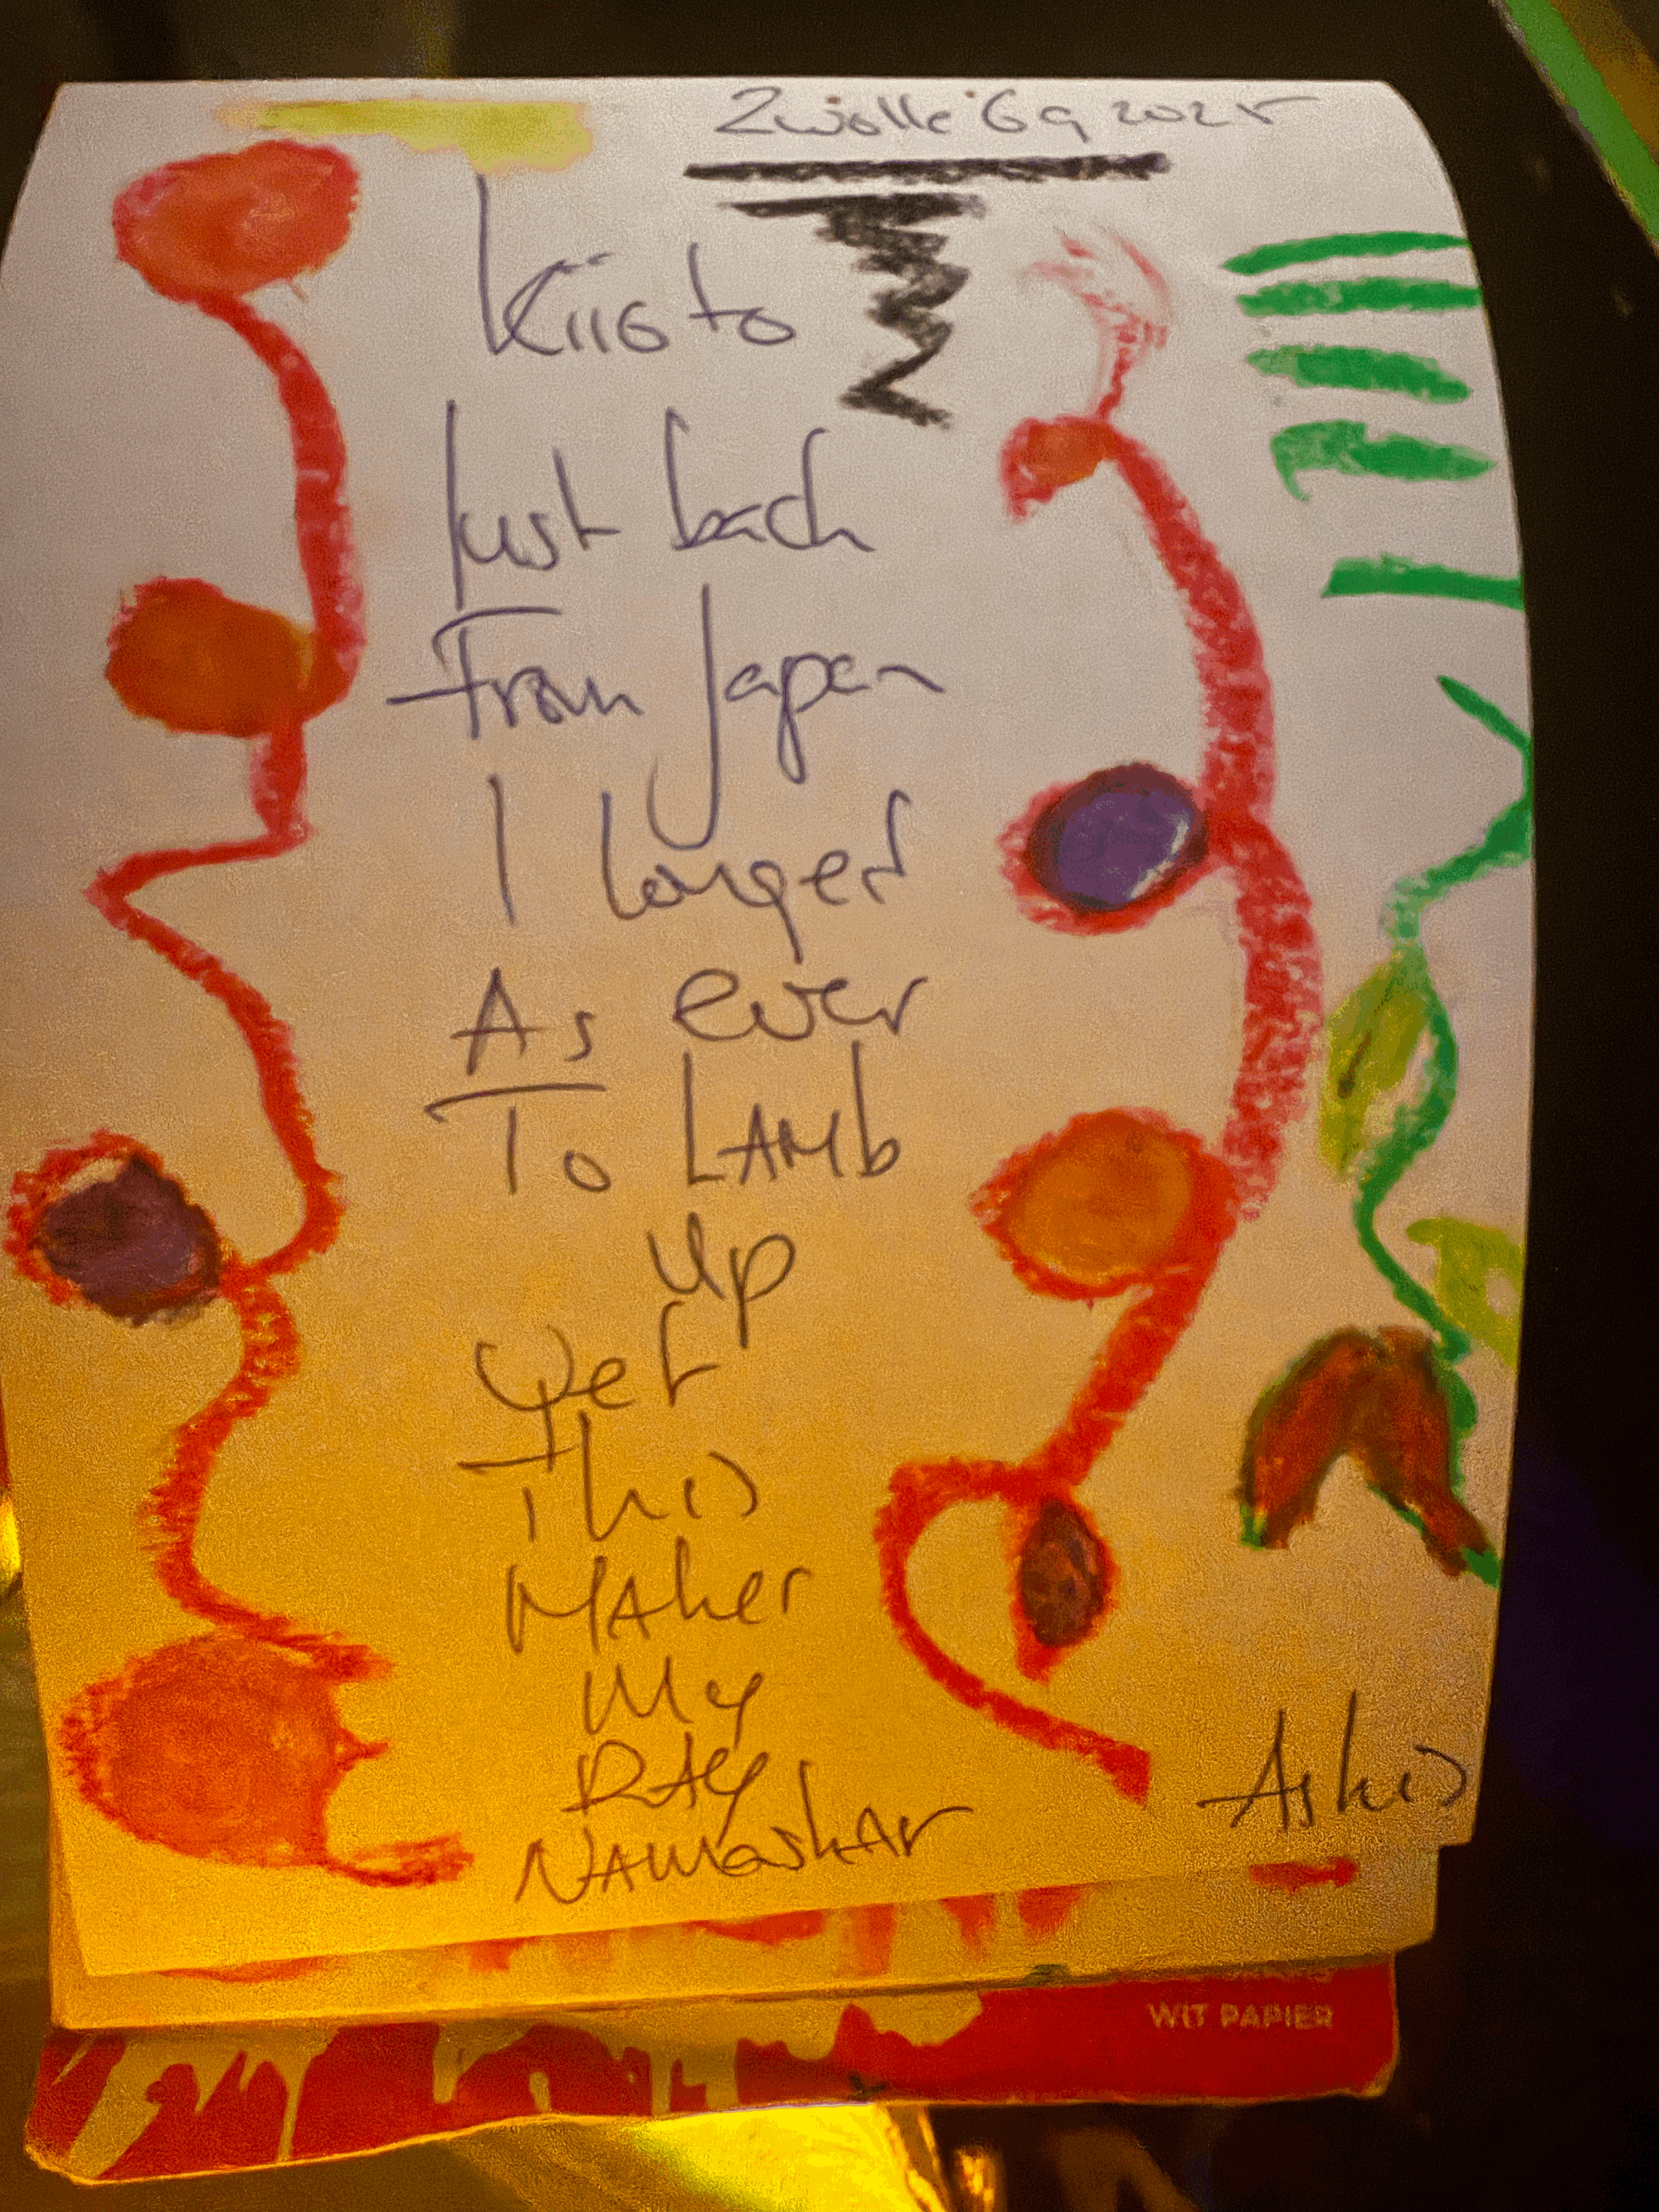 Zwolle 6 9 2025
Kiioto
Just back
From Japan
I longer
As ever
To LAMb
up
Yet
This
MAker
My
DAy
NAMAskAr
Askis
WIT PAPIER